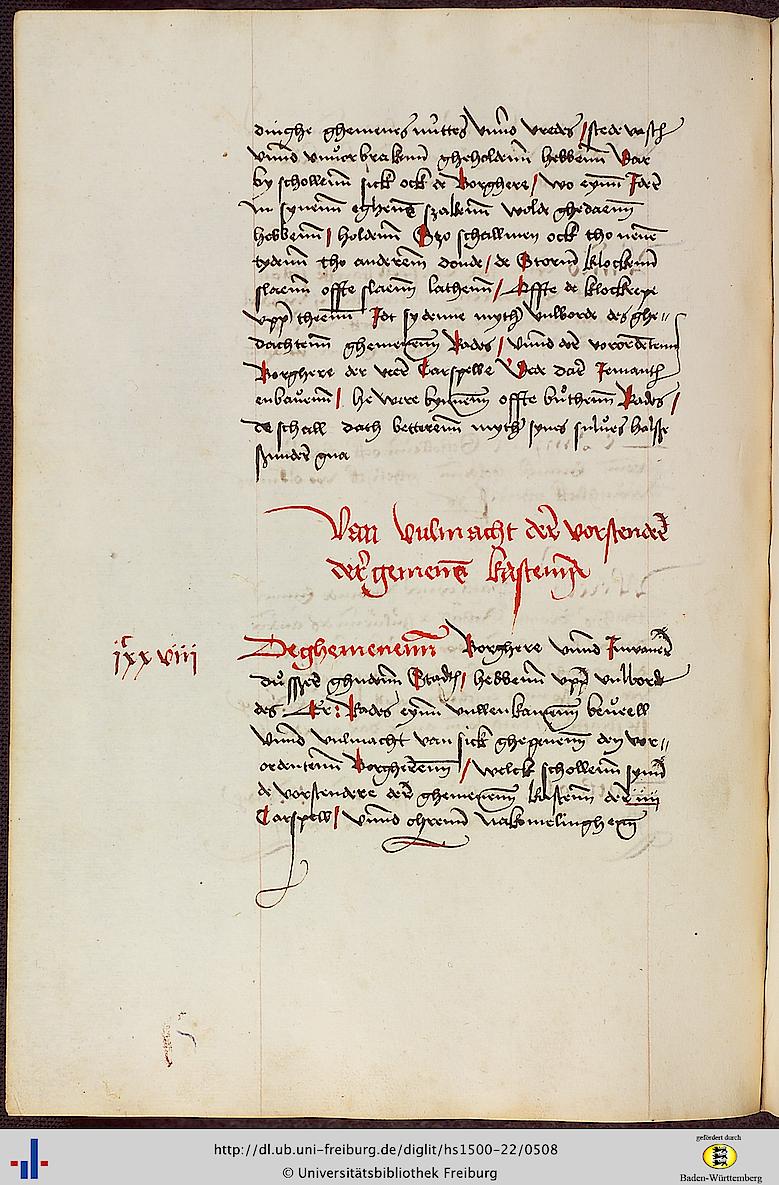 dinghe ghemenes nuttes vnnd vredes / stede vasth
vnnd vnuorbrakenn gheholdenn hebbenn Dar
by schollenn sick ock de Borghere / wo eynn Jder
in synenn eghens szakenn wolde ghedaenn
hebbenn / holdenn Szo schallmen ock tho nene
tydenn tho anderem donde / de Storm klockenn
slaenn offte slaenn lathenn / Offte de klockrepe
vpp theenn Jdt sy denne myth vulborde des ghe-
dachtenn ghemenenn Rades / vnnd der vorordentenn
Borghere der veer Carspelle Wede dar Jemanth
enbauenn / he were bynnenn offte buthenn Rades /
de schall dath betterenn myth synes sulues halsze
szunder gna
Van vulmacht der vorstender
der gemenen kastenn
jcxxviii
De ghemenenn Borghere vnnd Jnwaner
dusszer ghudenn Stadth / hebbenn vpp vulbordt
des Er: Rades eynn vullenkamenn beuell
vnnd vulmacht van sick ghegeuenn den vor-
ordentenn Borgherenn / welck schollenn synn
de vorstendere der ghemenenn kastenn der iiii
Carspell / vnnd ohrenn nakomelinghenn
http://dl.ub.uni-freiburg.de/diglit/hs1500-22/0508
© Universitätsbibliothek Freiburg
gefördert durch
Baden-Württemberg